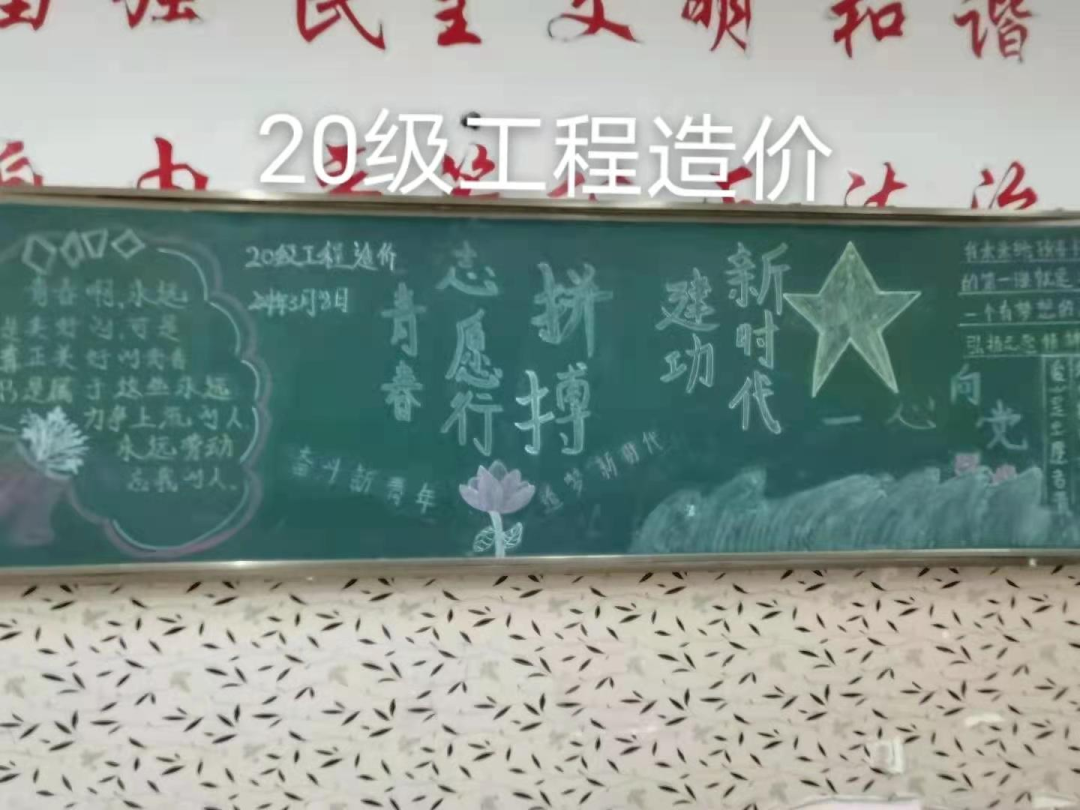 强 民主 文明 和谐
20级工程造价
由 法治
青春啊,永远
是美好的,可是
真正美好的青春
只是属于这些永远
力争上流的人
永远劳动
忘我的人.
20级工程造价
青春
志愿行
拼搏
建功
新时代
奋斗新青年
追梦新时代
一心向党
的第一课就是
一个有梦想的